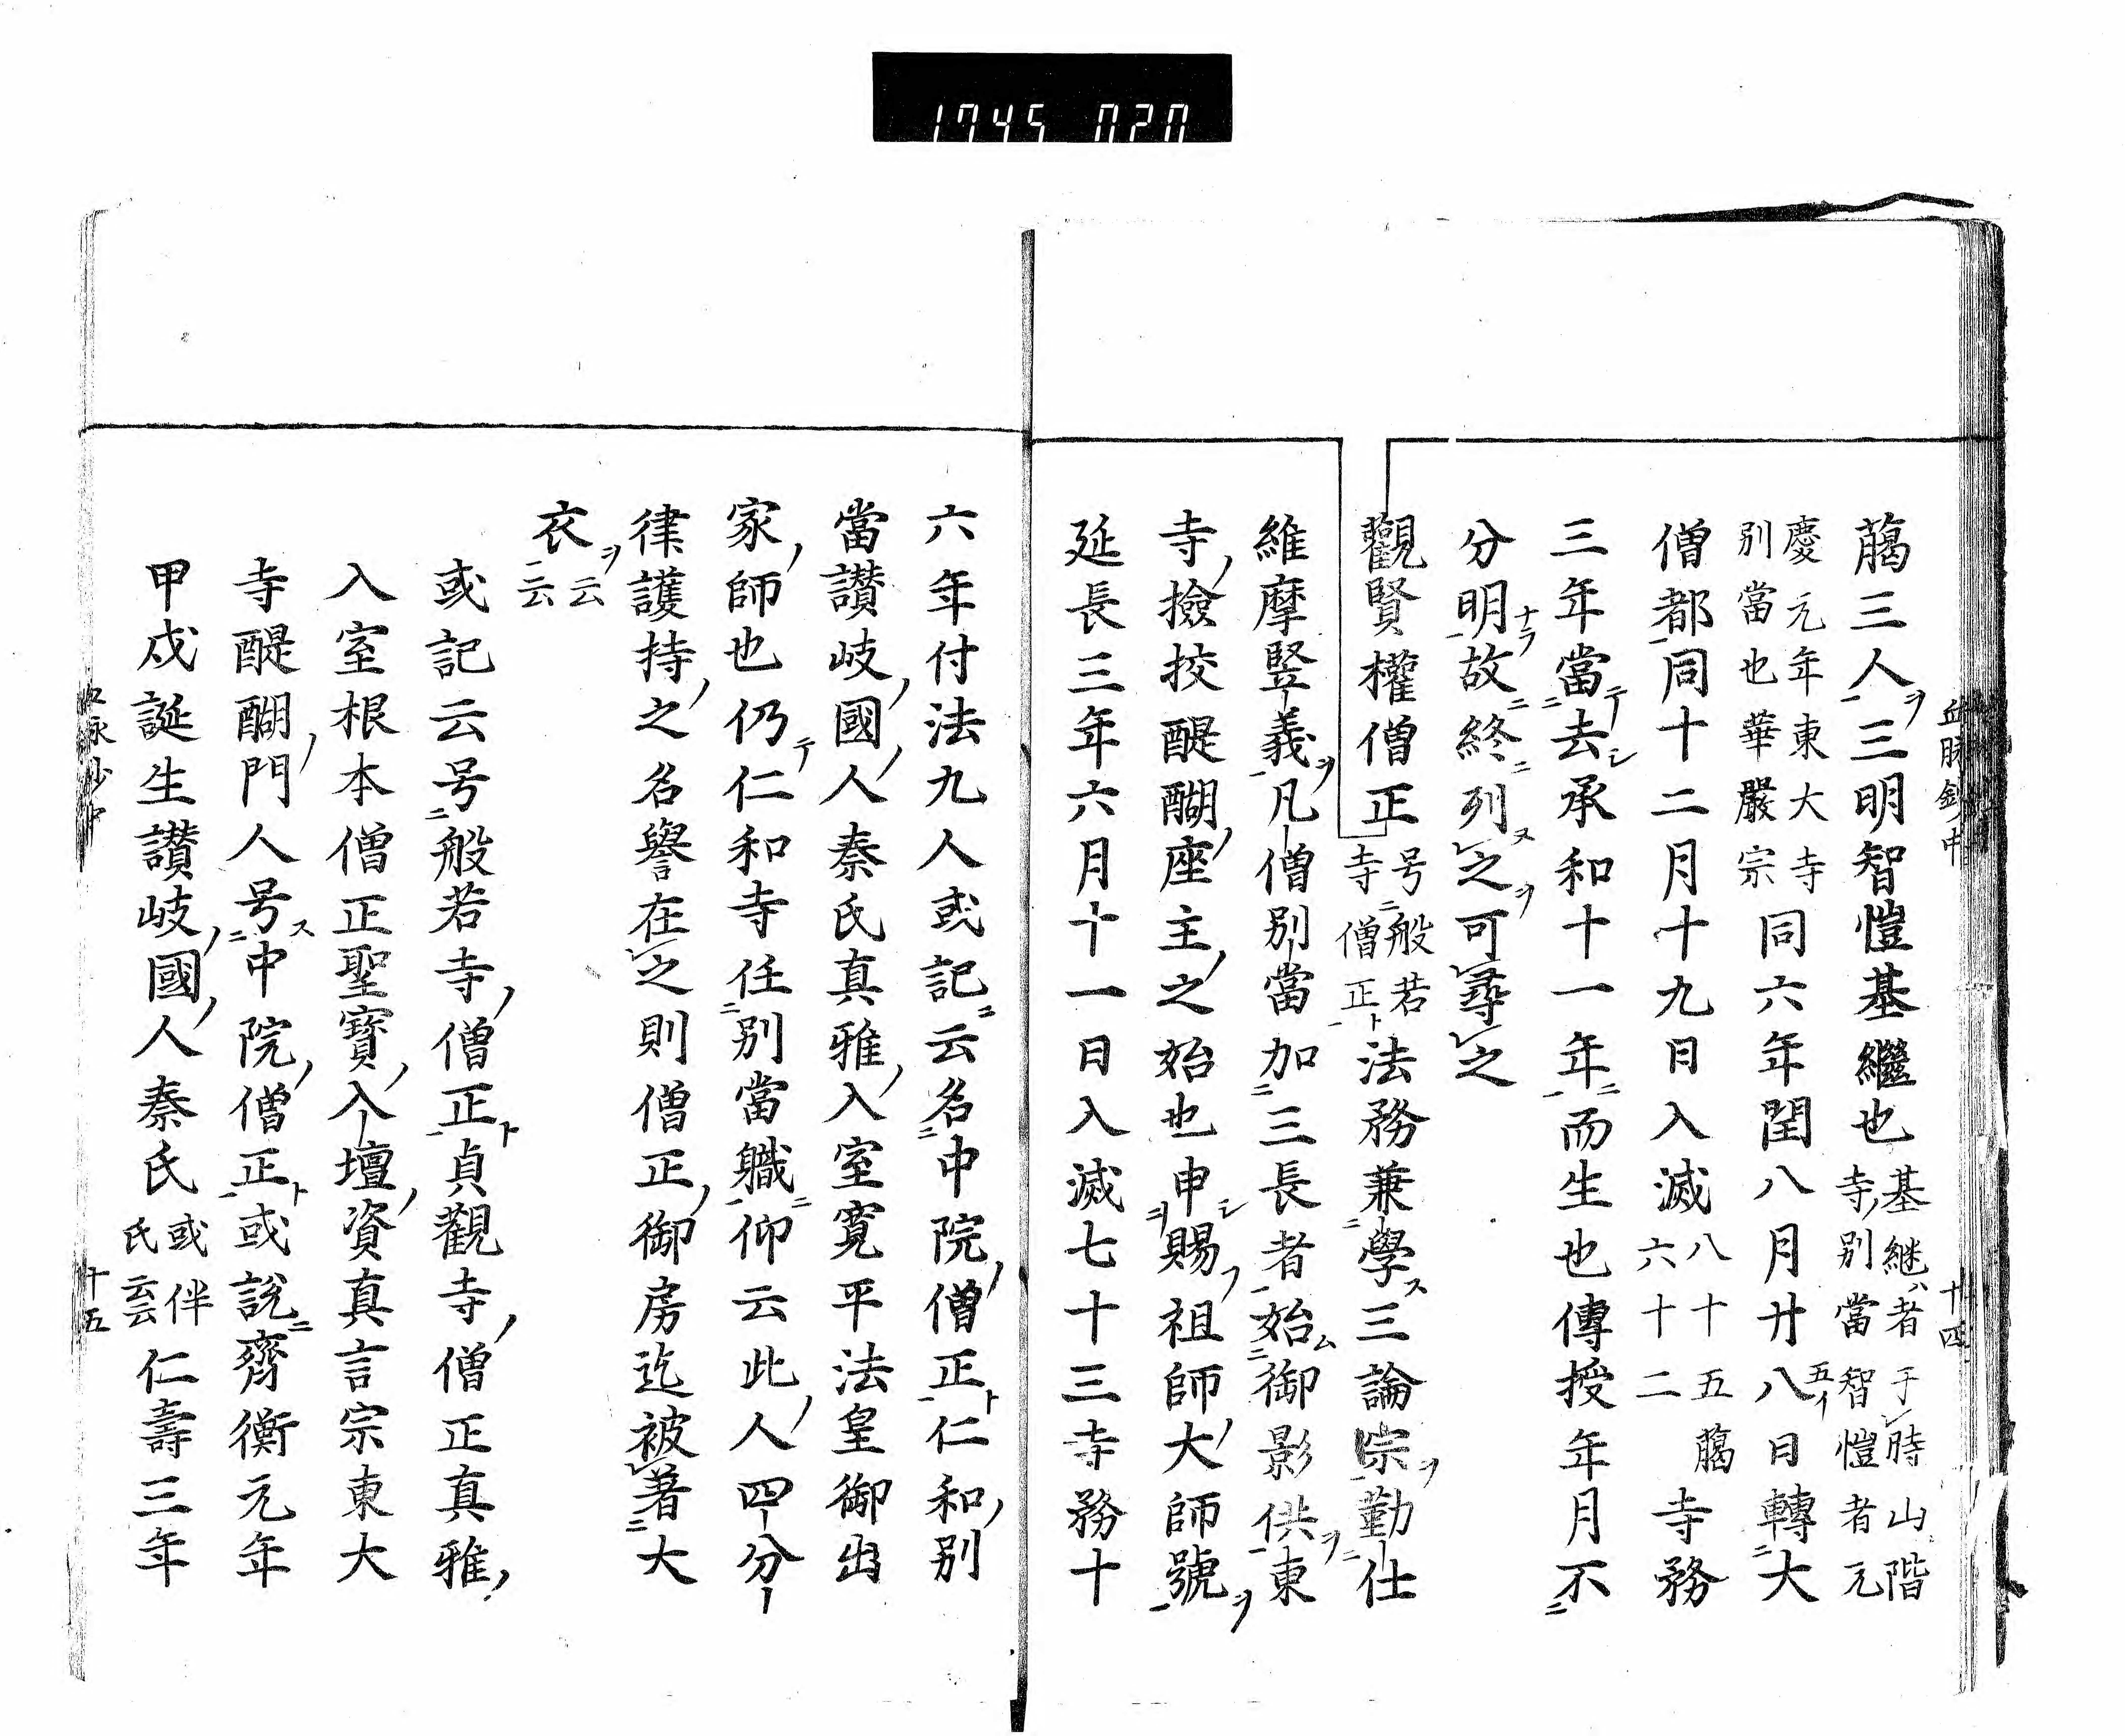 1745 020
臈三人ヲ三明智愷基繼也 基継ハ者于時山階
寺ノ別當智愷者元
慶元年東大寺
別當也華嚴宗 同六年閏八月廿八五イ日轉大
僧都同十二月十九日入滅 八十五臈
六十二 寺務
三年當テ去シ承和十一年ニ而生也傳授年月不
分明ナラ故ニ終ニ列ヌ之ヲ可尋之
觀賢權僧正 号般若
寺僧正ト 法務兼學ス三論宗ヲ勤仕
維摩竪義ヲ凡僧別當加三長者始ム御影供ヲ東
寺ノ撿挍醍醐ノ座主ノ之始也申シ賜フ祖師大ノ師號ヲ
延長三年六月十一日入滅七十三寺務十
六年付法九人或記ニ云名中院ノ僧正ト仁和ノ別
當讃岐ノ國ノ人秦氏真雅ノ入室寛平法皇御出
家ノ師也仍テ仁和寺任別當職ニ仰云此ノ人四分
律護持ノ之名譽在之則僧正ノ御房迄被著大
衣ヲ云云
或記云号般若寺ノ僧正ト貞觀寺ノ僧正真雅ノ
入室根本僧正聖寳ノ入壇ノ資真言宗東大
寺醍醐ノ門人号ス中院ノ僧正ト或説ニ齊衡元年
甲戌誕生讃岐ノ國ノ人秦氏 或伴
氏云云 仁壽三年
血脉鈔中
十四
十五